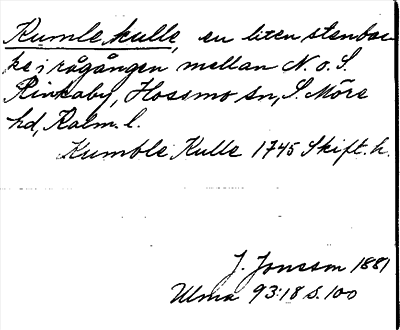 Kumle kulle, en liten stenbac
ke i rågången mellan N. o. S.
Rinkaby, Hossmo sn, S. Möre
hd, Kalm. l.
Kumble Kulle 1745 Skift. h.
J. Jonsson 1881
Ulma 93:18 s. 100